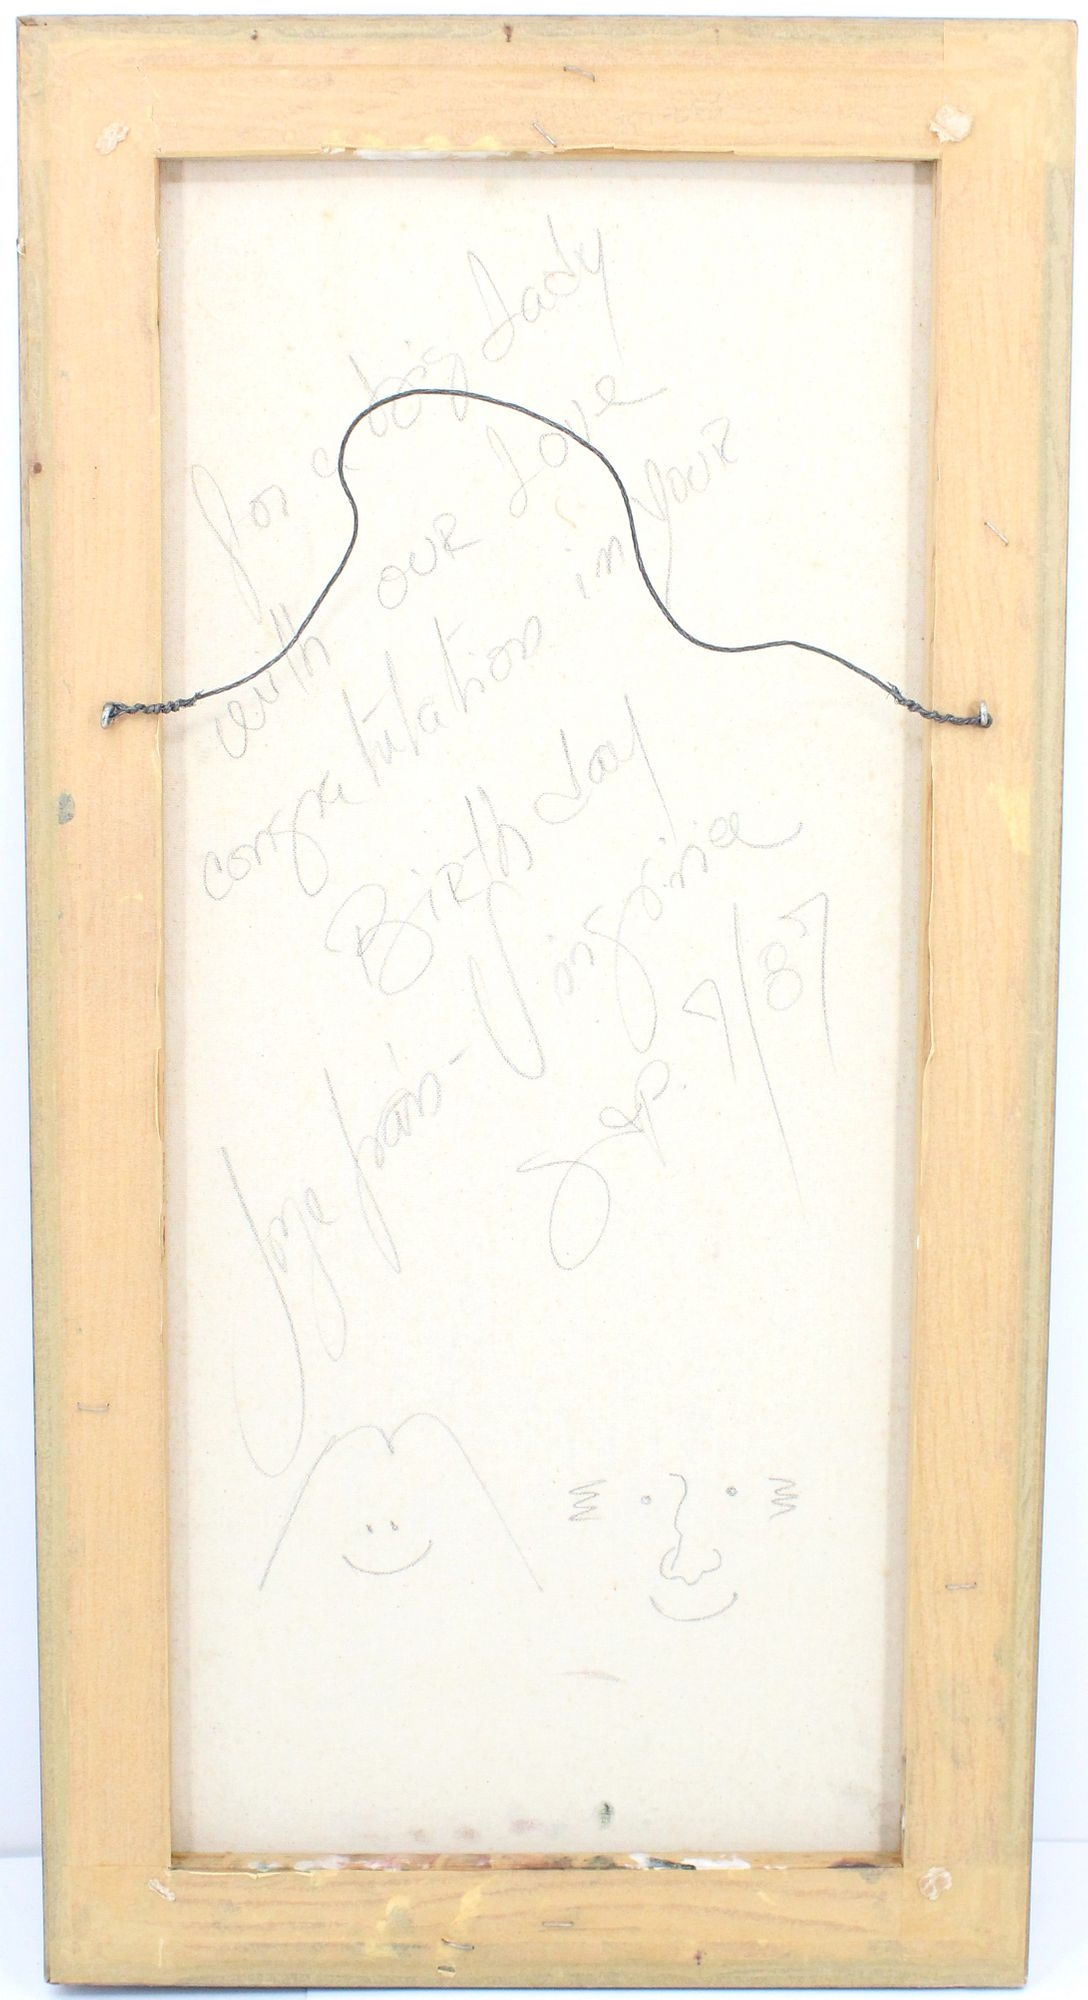 for a big Lady
with our Love
congratulation in your
Birth day
Jorge - Virginia
Sep. 7/87